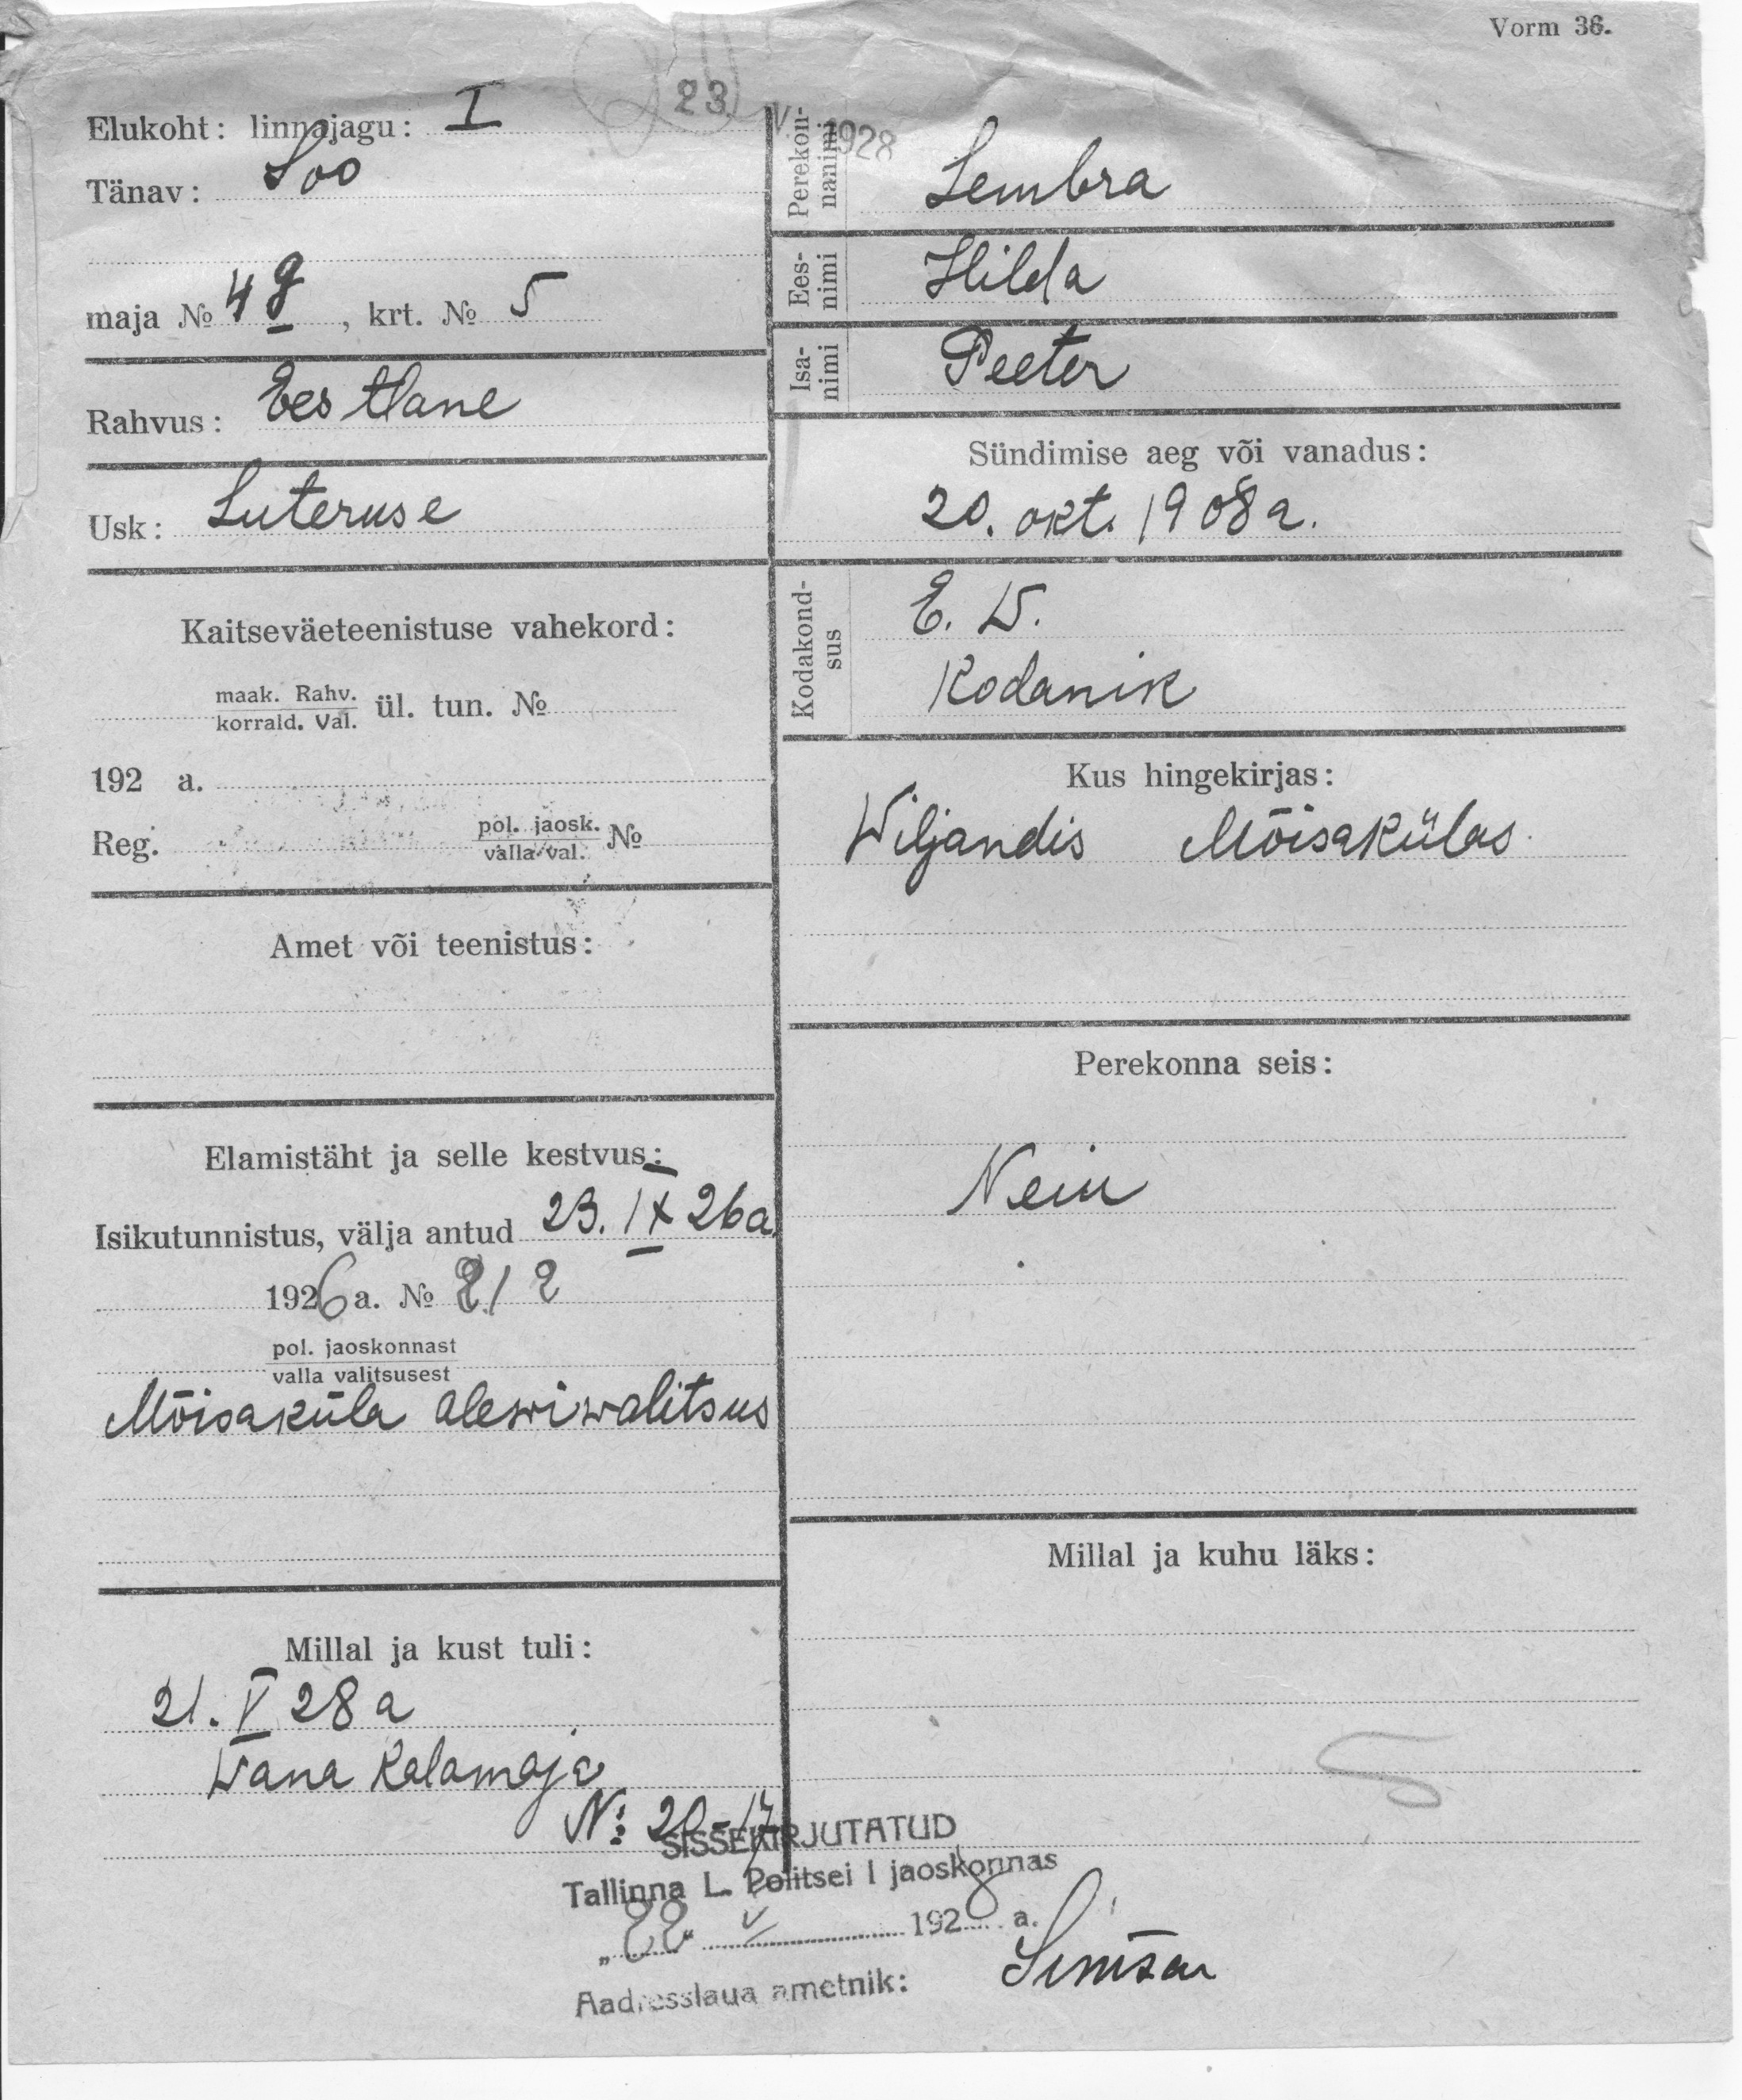 Vorm 36.
23. V. 1928
Elukoht: linnajagu: I
Tänav: Soo
maja № 4 g, krt. № 5
Rahvus: Eestlane
Usk: Luteruse
Kaitseväeteenistuse vahekord:
maak. Rahv.
korrald. Val. ül. tun. №
192 a.
Reg. pol. jaosk. №
valla val.
Amet või teenistus:
Elamistäht ja selle kestvus:
Isikutunnistus, välja antud 23. IX 26a.
1926 a. № 212
pol. jaoskonnast
valla valitsusest
Mõisaküla alewiwalitsus
Millal ja kust tuli:
21. V 28 a
Wana Kalamaja
№ 20-17
Perekonnanimi
Lembra
Eesnimi
Hilda
Isanimi
Peeter
Sündimise aeg või vanadus:
20. okt. 1908 a.
Kodakondsus
E. W.
Kodanik
Kus hingekirjas:
Wiljandis Mõisakülas
Perekonna seis:
Neiu
Millal ja kuhu läks:
5
SISSEKIRJUTATUD
Tallinna L. Politsei I jaoskonnas
„22" V 1928 a.
Aadresslaua ametnik: